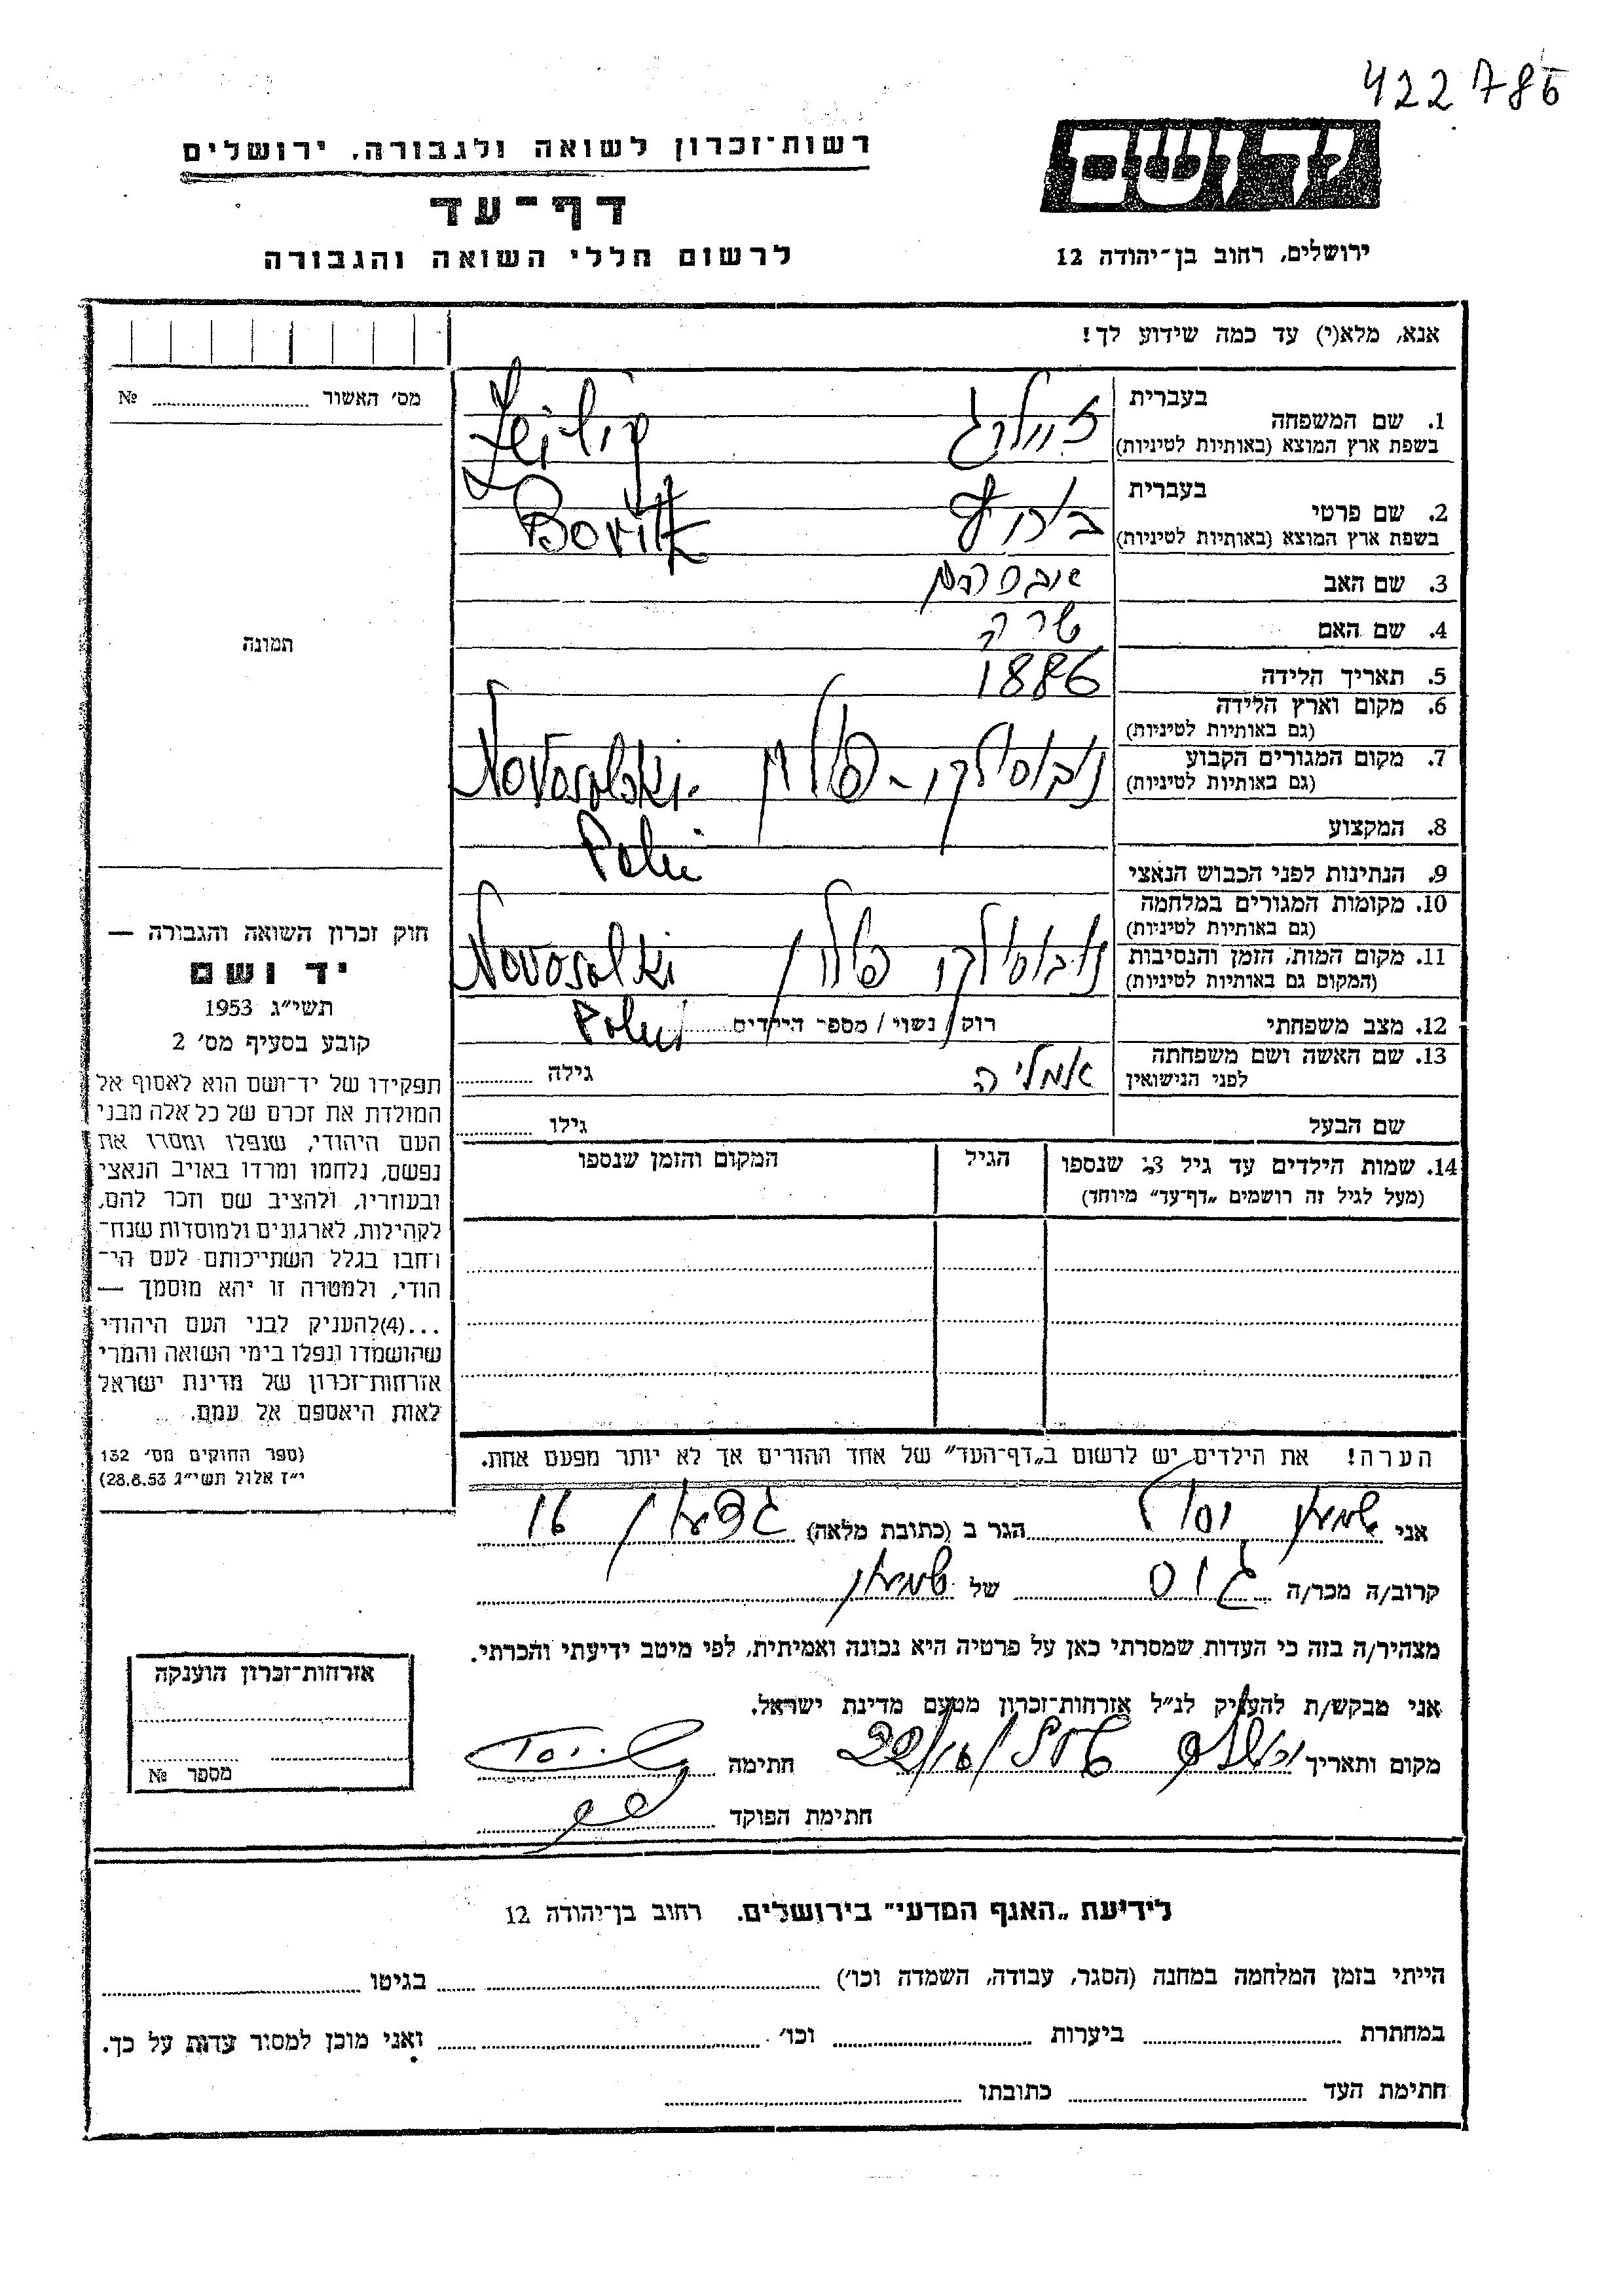 422786
רשות־זכרון לשואה ולגבורה, ירושלים
דף־עד
לרשום חללי השואה והגבורה
יד ושם
ירושלים, רחוב בן־יהודה 12
אנא, מלא(י) עד כמה שידוע לך!
מס׳ האשור № 
תמונה
חוק זכרון השואה והגבורה —
יד ושם
תשי״ג 1953
קובע בסעיף מס׳ 2
תפקידו של יד־ושם הוא לאסוף אל
המולדת את זכרם של כל אלה מבני
העם היהודי, שנפלו ומסרו את
נפשם, נלחמו ומרדו באויב הנאצי
ובעוזריו, ולהציב שם וזכר להם,
לקהילות, לארגונים ולמוסדות שנח־
רחבו בגלל השתייכותם לעם הי־
הודי, ולמטרה זו יהא מוסמך —
...(4)להעניק לבני העם היהודי
שהושמדו ונפלו בימי השואה והמרי
אזרחות־זכרון של מדינת ישראל
לאות היאספם אל עמם.
(ספר החוקים מס׳ 132
י״ז אלול תשי״ג 28.8.53)
1. שם המשפחה בעברית
בשפת ארץ המוצא (באותיות לטיניות)
2. שם פרטי בעברית
בשפת ארץ המוצא (באותיות לטיניות)
3. שם האב אברהם
4. שם האם שרה
5. תאריך הלידה 1886
6. מקום וארץ הלידה
(גם באותיות לטיניות)
7. מקום המגורים הקבוע נובוסילקו - פולין
(גם באותיות לטיניות)
8. המקצוע
9. הנתינות לפני הכבוש הנאצי
10. מקומות המגורים במלחמה
(גם באותיות לטיניות)
11. מקום המות, הזמן והנסיבות נובוסילקו פולין
(המקום גם באותיות לטיניות)
12. מצב משפחתי רוק / נשוי / מספר הילדים
13. שם האשה ושם משפחתה
לפני הנישואין אמליה גילה
שם הבעל גילו
14. שמות הילדים עד גיל 18 שנספו הגיל המקום והזמן שנספו
(מעל לגיל זה רושמים „דף־עד״ מיוחד)
הערה! את הילדים יש לרשום ב„דף־העד״ של אחד ההורים אך לא יותר מפעם אחת.
אני שמעון יוסף הגר ב (כתובת מלאה) 16
קרוב/ה מכר/ה גיס של שמעון
מצהיר/ה בזה כי העדות שמסרתי כאן על פרטיה היא נכונה ואמיתית, לפי מיטב ידיעתי והכרתי.
אני מבקש/ת להעניק לנ״ל אזרחות־זכרון מטעם מדינת ישראל.
מקום ותאריך חתימה
חתימת הפוקד
אזרחות־זכרון הוענקה
מספר №
לידיעת „האגף המדעי״ בירושלים. רחוב בן־יהודה 12
הייתי בזמן המלחמה במחנה (הסגר, עבודה, השמדה וכו׳) בגיטו
במחתרת ביערות וכו׳ ואני מוכן למסור עדות על כך.
חתימת העד כתובתו